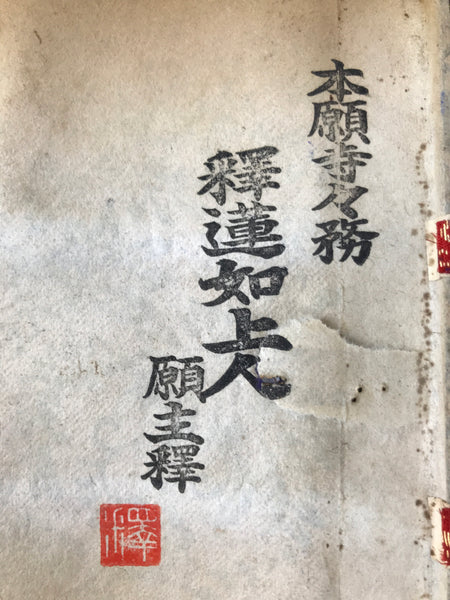 本願寺々務
釋蓮如上人
願主釋
釋